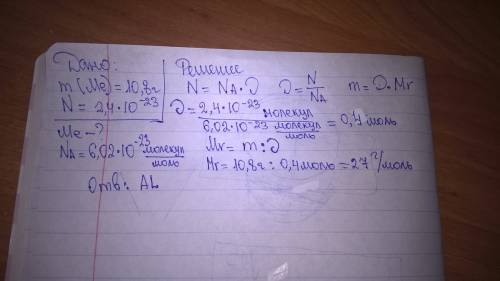 Дано:
m(Me) = 10,8г
N = 2,4·10⁻²³
Me - ?
NA = 6,02·10⁻²³ молекул/моль
Решение
N = NA·υ υ = N/NA m = υ·Mr
υ = 2,4·10⁻²³ молекул / 6,02·10⁻²³ молекул/моль = 0,4 моль
Mr = m : υ
Mr = 10,8г : 0,4моль = 27 г/моль
Отв: AL